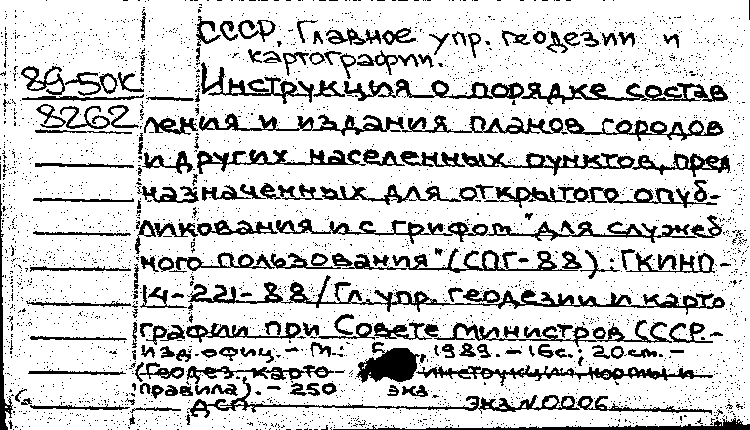 СССР. Главное упр. геодезии и
картографии.
89-50К Инструкция о порядке состав
8262 ления и издания планов городов
и других населенных пунктов, пред
назначенных для открытого опуб-
ликования и с грифом "для служеб
ного пользования" (СПГ-88) : ГКИНП-
14-221-88 / Гл. упр. геодезии и карто
графии при Совете Министров СССР.-
Изд. офиц. - М.: , 1989. - 16с.; 20см. -
(Геодез., карто инструкции, нормы и
правила). - 250 экз.
ДСП. Экз N 0006